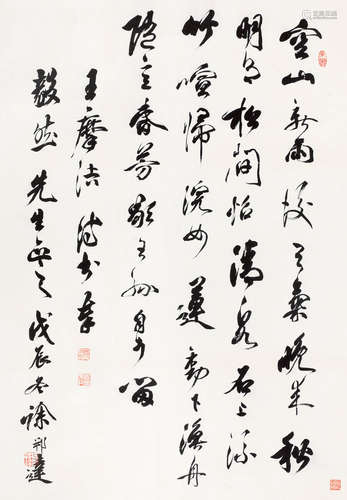 空山新雨後天氣晚來秋
明月松間照清泉石上流
竹喧歸浣女蓮動下漁舟
隨意春芳歇王孫自可留
王摩詰詩書奉
毅然先生正之戊辰冬徐邦達